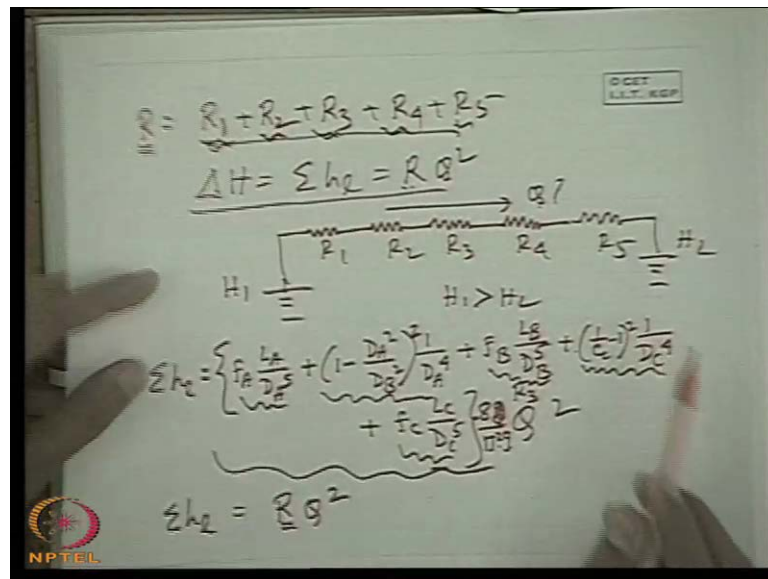 © CET
I.I.T. KGP
R = R₁ + R₂ + R₃ + R₄ + R₅
ΔH = Σhₑ = RQ²
Q?
R₁ R₂ R₃ R₄ R₅
H₁ H₂
H₁ > H₂
Σhₑ = { f_A L_A/D_A⁵ + (1 - D_A²/D_B²)² 1/D_A⁴ + f_B L_B/D_B⁵ + (1/C_c - 1)² 1/D_C⁴
R₃
+ f_C L_C/D_C⁵ } Q²
Σhₑ = RQ²
NPTEL